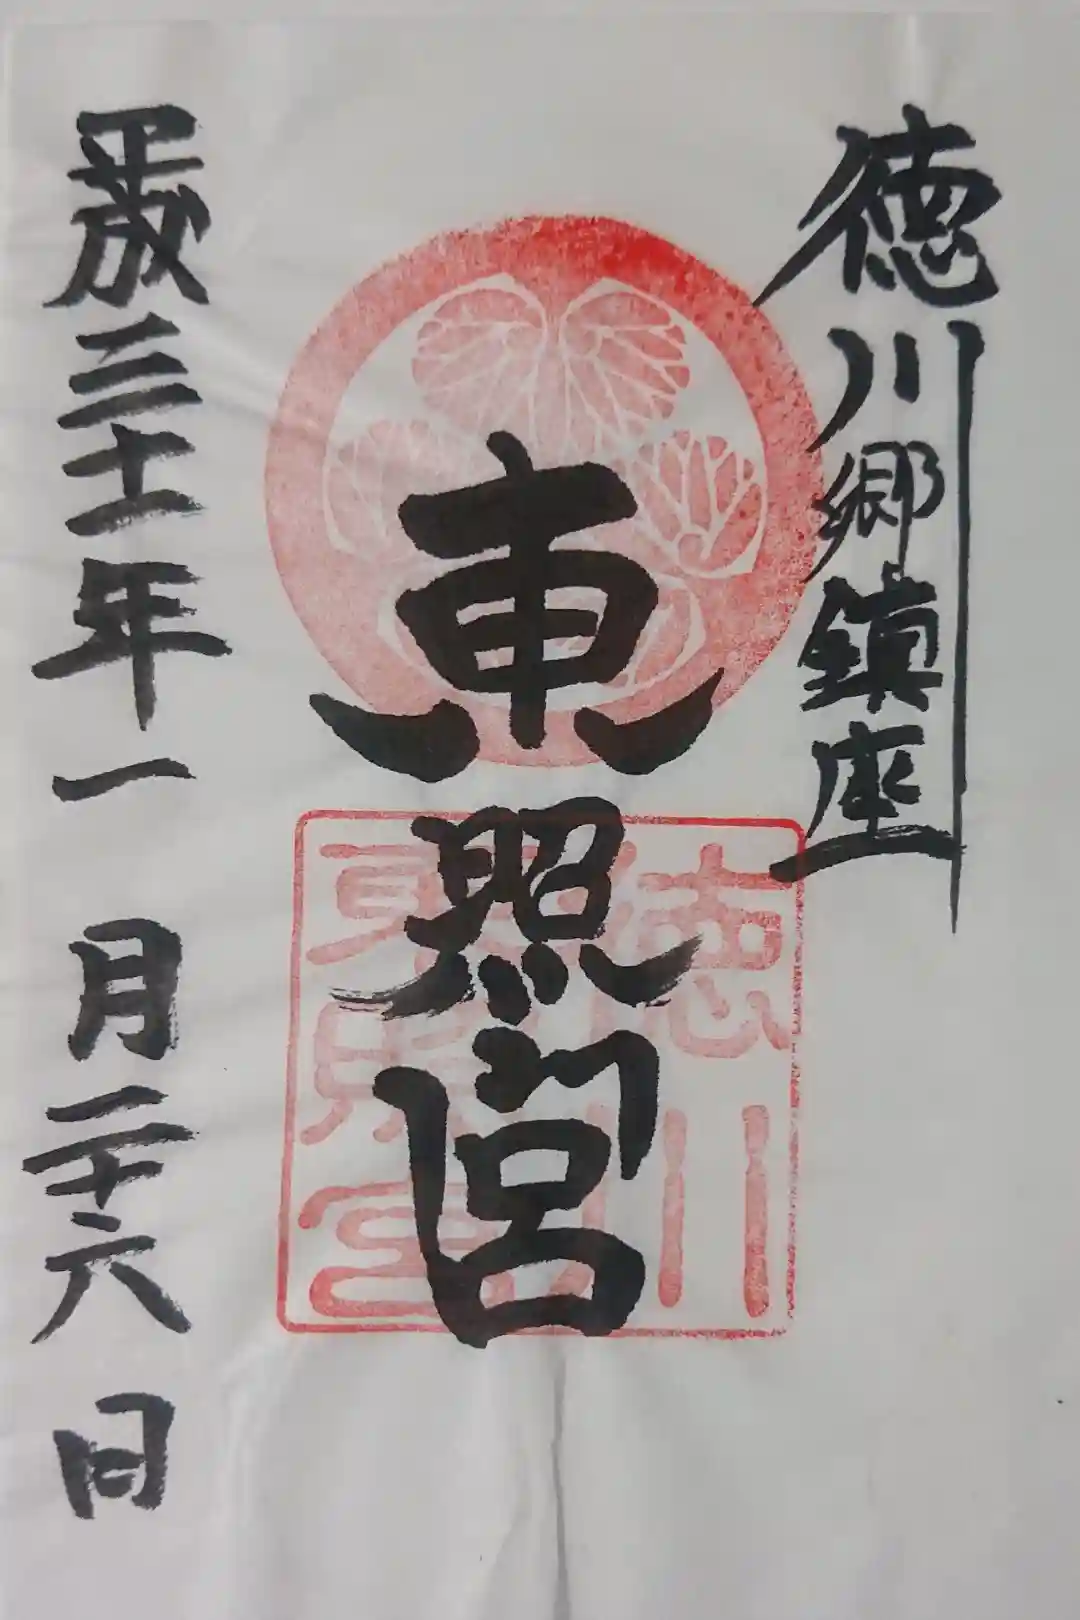 徳川郷鎮座
東照宮
徳川
東照宮
平成三十一年一月二十六日